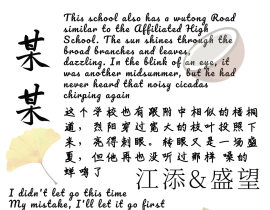 某
某
This school also has a wutong Road
similar to the Affiliated High
School. The sun shines through the
broad branches and leaves,
dazzling. In the blink of an eye, it
was another midsummer, but he had
never heard that noisy cicadas
chirping again
这个学校也有跟附中相似的梧桐
道，烈阳穿过宽大的枝叶投照下
来，亮得刺眼。转眼又是一场盛
夏，但他再也没听过那样 嗓的
蝉鸣了
江添&盛望
I didn't let go this time
My mistake, I'll let it go first